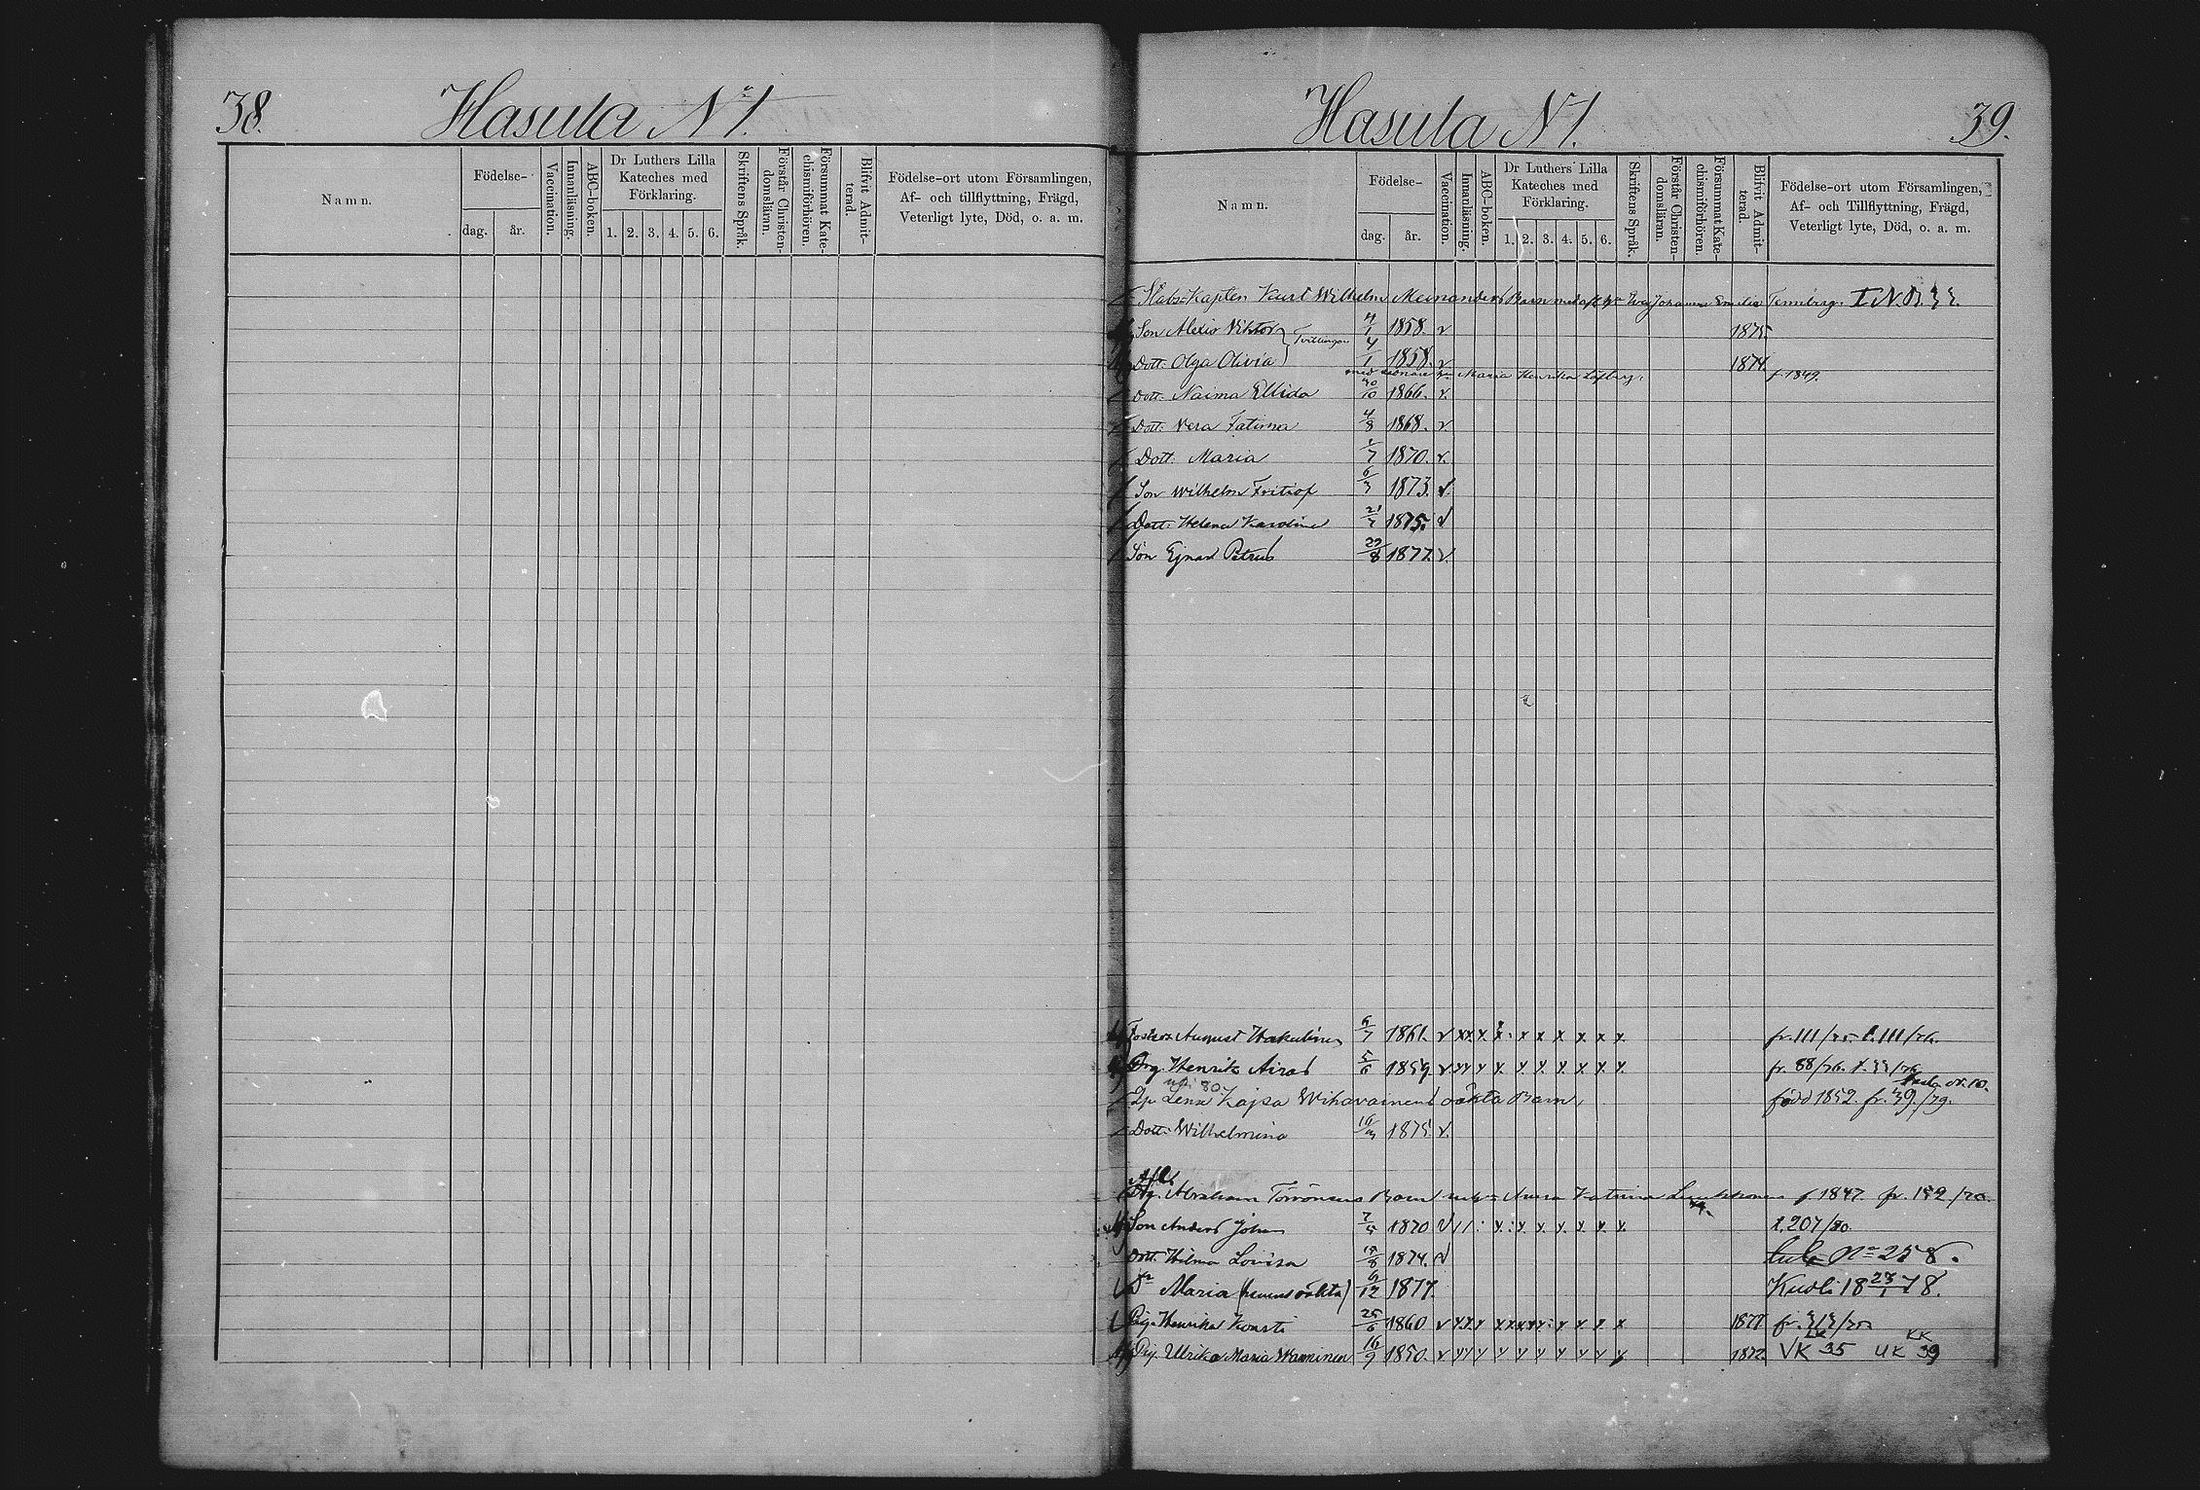 38.
Hasula N:1.
Namn.
Födelse-
dag.
år.
Vaccination.
Innanläsning.
ABC-boken.
Dr Luthers Lilla
Kateches med
Förklaring.
1. 2. 3. 4. 5. 6.
Skriftens Språk.
Förstår Christen-
domsläran.
Försummat Kate-
chismiförhören.
Blifvit Admit-
terad.
Födelse-ort utom Församlingen,
Af- och tillflyttning, Frägd,
Veterligt lyte, Död, o. a. m.
Hasula N:1.
39.
Namn.
Födelse-
dag.
år.
Vaccination.
Innanläsning.
ABC-boken.
Dr Luthers Lilla
Kateches med
Förklaring.
1. 2. 3. 4. 5. 6.
Skriftens Språk.
Förstår Christen-
domsläran.
Försummat Kate-
chismiförhören.
Blifvit Admit-
terad.
Födelse-ort utom Församlingen,
Af- och Tillflyttning, Frägd,
Veterligt lyte, Död, o. a. m.
Stabs-Kapten Kurt Wilhelm Meinanders Barn med Johanna Emelia
Son Alexis Viktor Tvillingar 4/1 1858. v 1875.
Dott. Olga Olivia 4/1 1858. v 1874.
med Maria Henrika f. 1849.
Dott. Naima Ellida 30/10 1866. v.
Dott. Vera Fatima 4/8 1868. v
Dott. Maria 1870. v.
Son Wilhelm Fritiof 6/3 1873. v.
Dott. Helena Karolina 1875. v
Son Ejnar Petrus 22/8 1877. v.
August Hakulinen 6/7 1861. v xx x x x x x x x fr. 111/75 t. 111/76.
Drg. Henrik Airas 5/6 1859. v x x x x x x x x x fr. 88/76.
Lena Kajsa oäkta Barn, född 1852. fr. 39./79.
Dott. Wilhelmina 16/3 1875. v.
Abraham Törrönens Barn Anna Katrina f. 1847. fr. 192/70
Son Anders Johan 1870 v x x x x x x x t. 207/80
Dott. Hilma Lovisa 1874. v N:o 258.
Maria (hennes oäkta) 6/12 1877. Kuoli 18 23/1 78.
Pig. Henrika Konsti 25/6 1860 v x x x x x x x x x 1877
Pig. Ulrika Maria Wanninen 16/9 1850. v x x x x x x x x x 1872. VK 35 UK 39